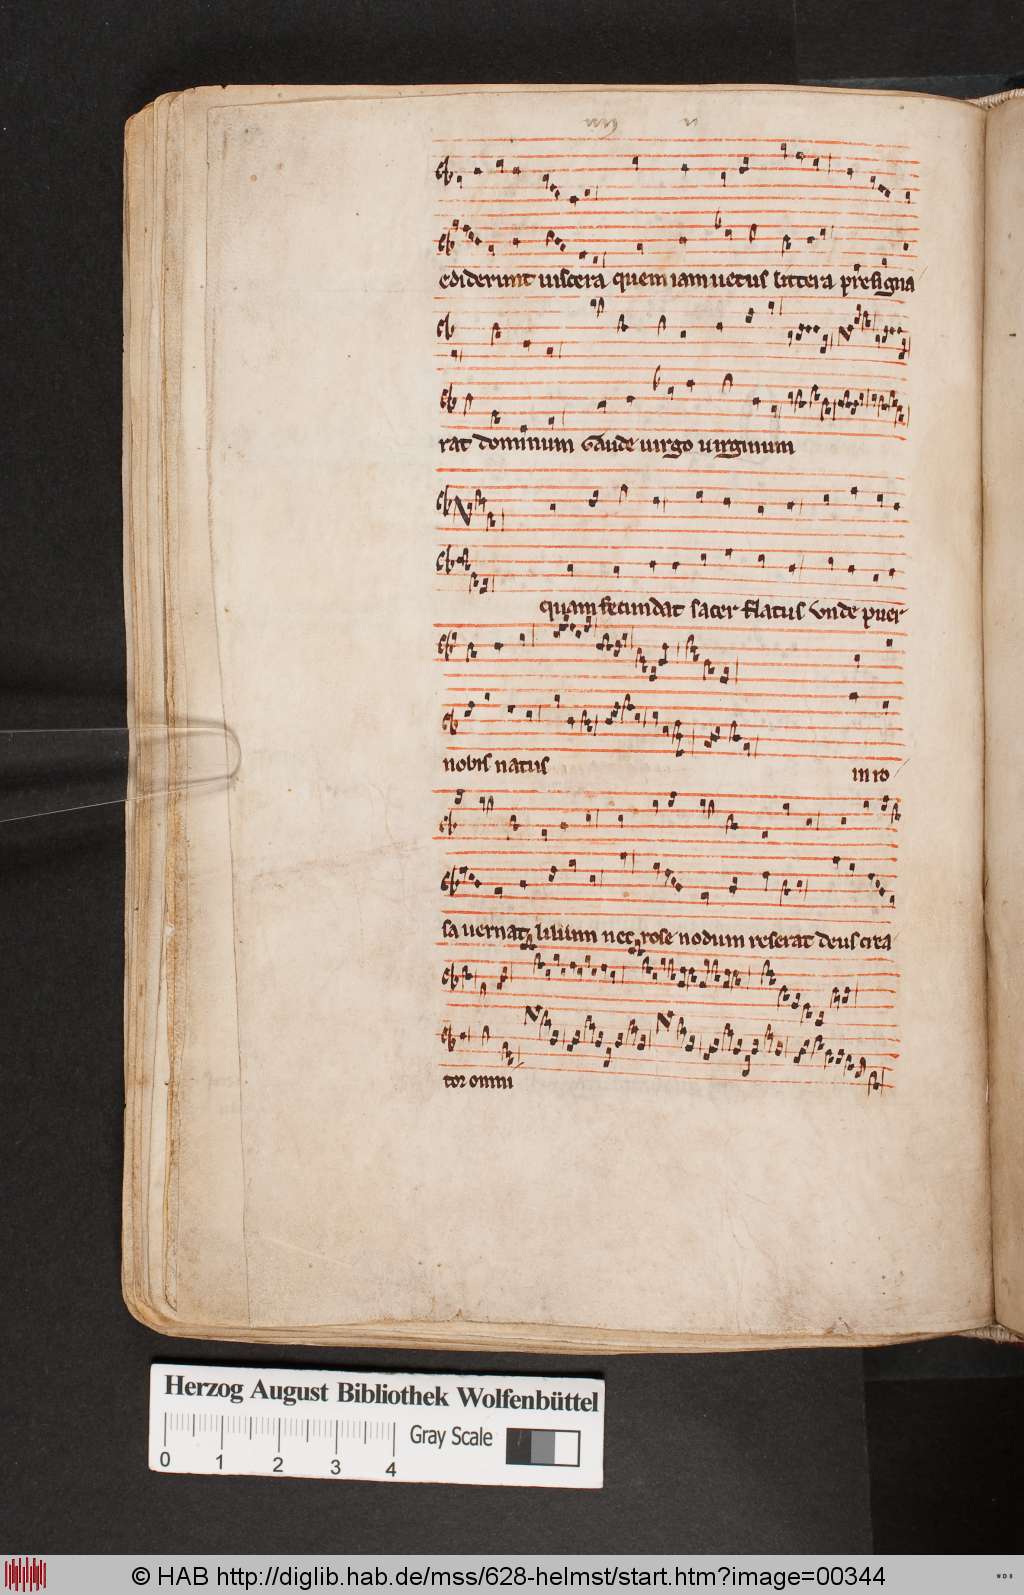 ediderunt viscera quem iam vetus littera presigna
rat dominum Gaude virgo virginum
quam fecundat sacer flatus vnde puer
nobis natus in ro
sa vernat lilium nec rose nodum reserat deus crea
tor omni
Herzog August Bibliothek Wolfenbüttel
Gray Scale
0 1 2 3 4
© HAB http://diglib.hab.de/mss/628-helmst/start.htm?image=00344